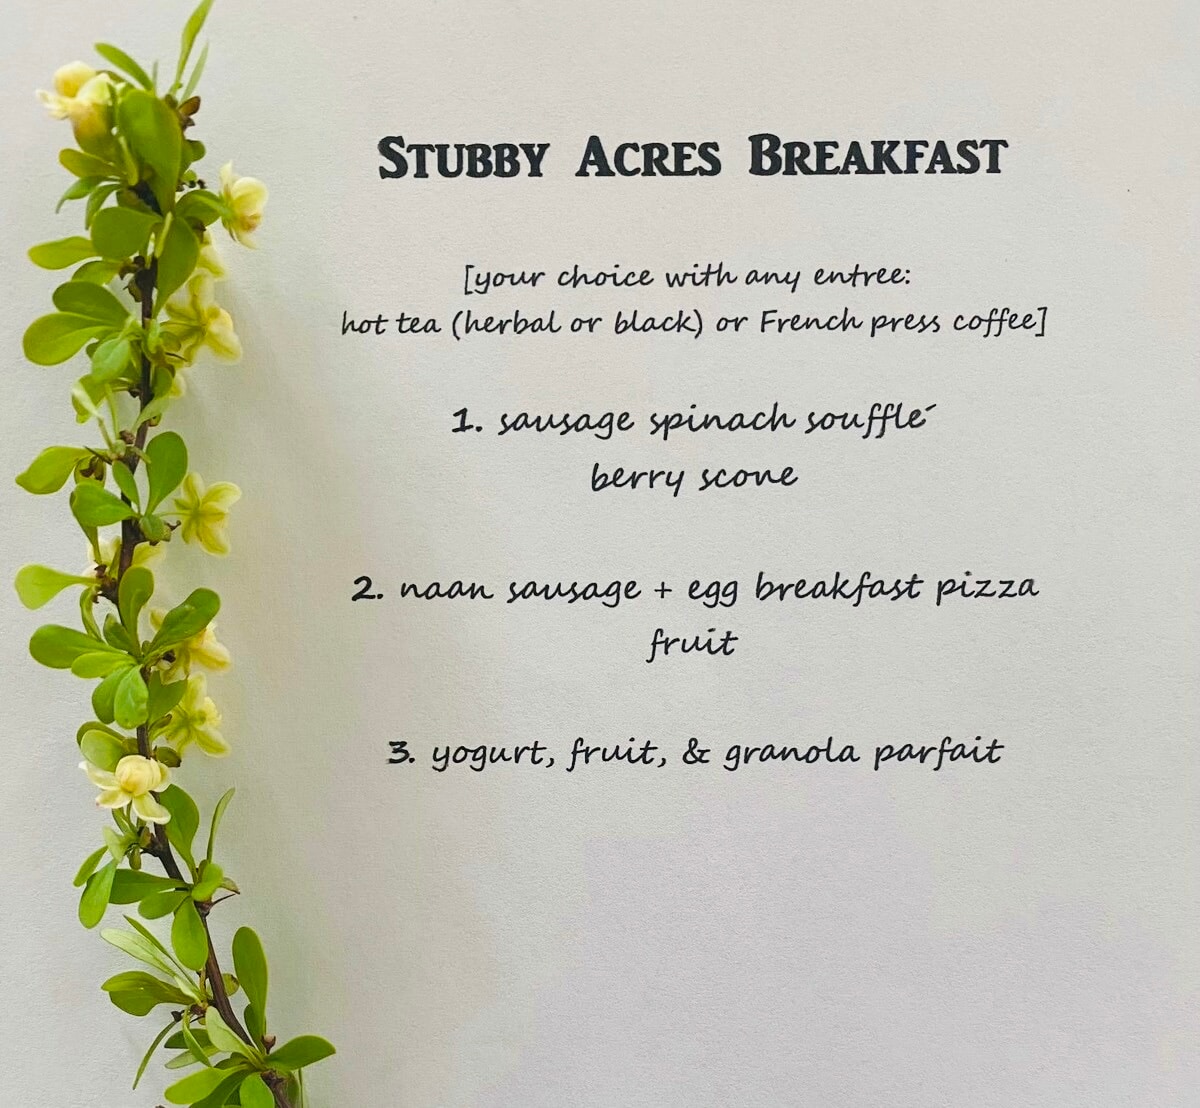 Stubby Acres Breakfast
[your choice with any entree:
hot tea (herbal or black) or French press coffee]
1. sausage spinach soufflé
berry scone
2. naan sausage + egg breakfast pizza
fruit
3. yogurt, fruit, & granola parfait